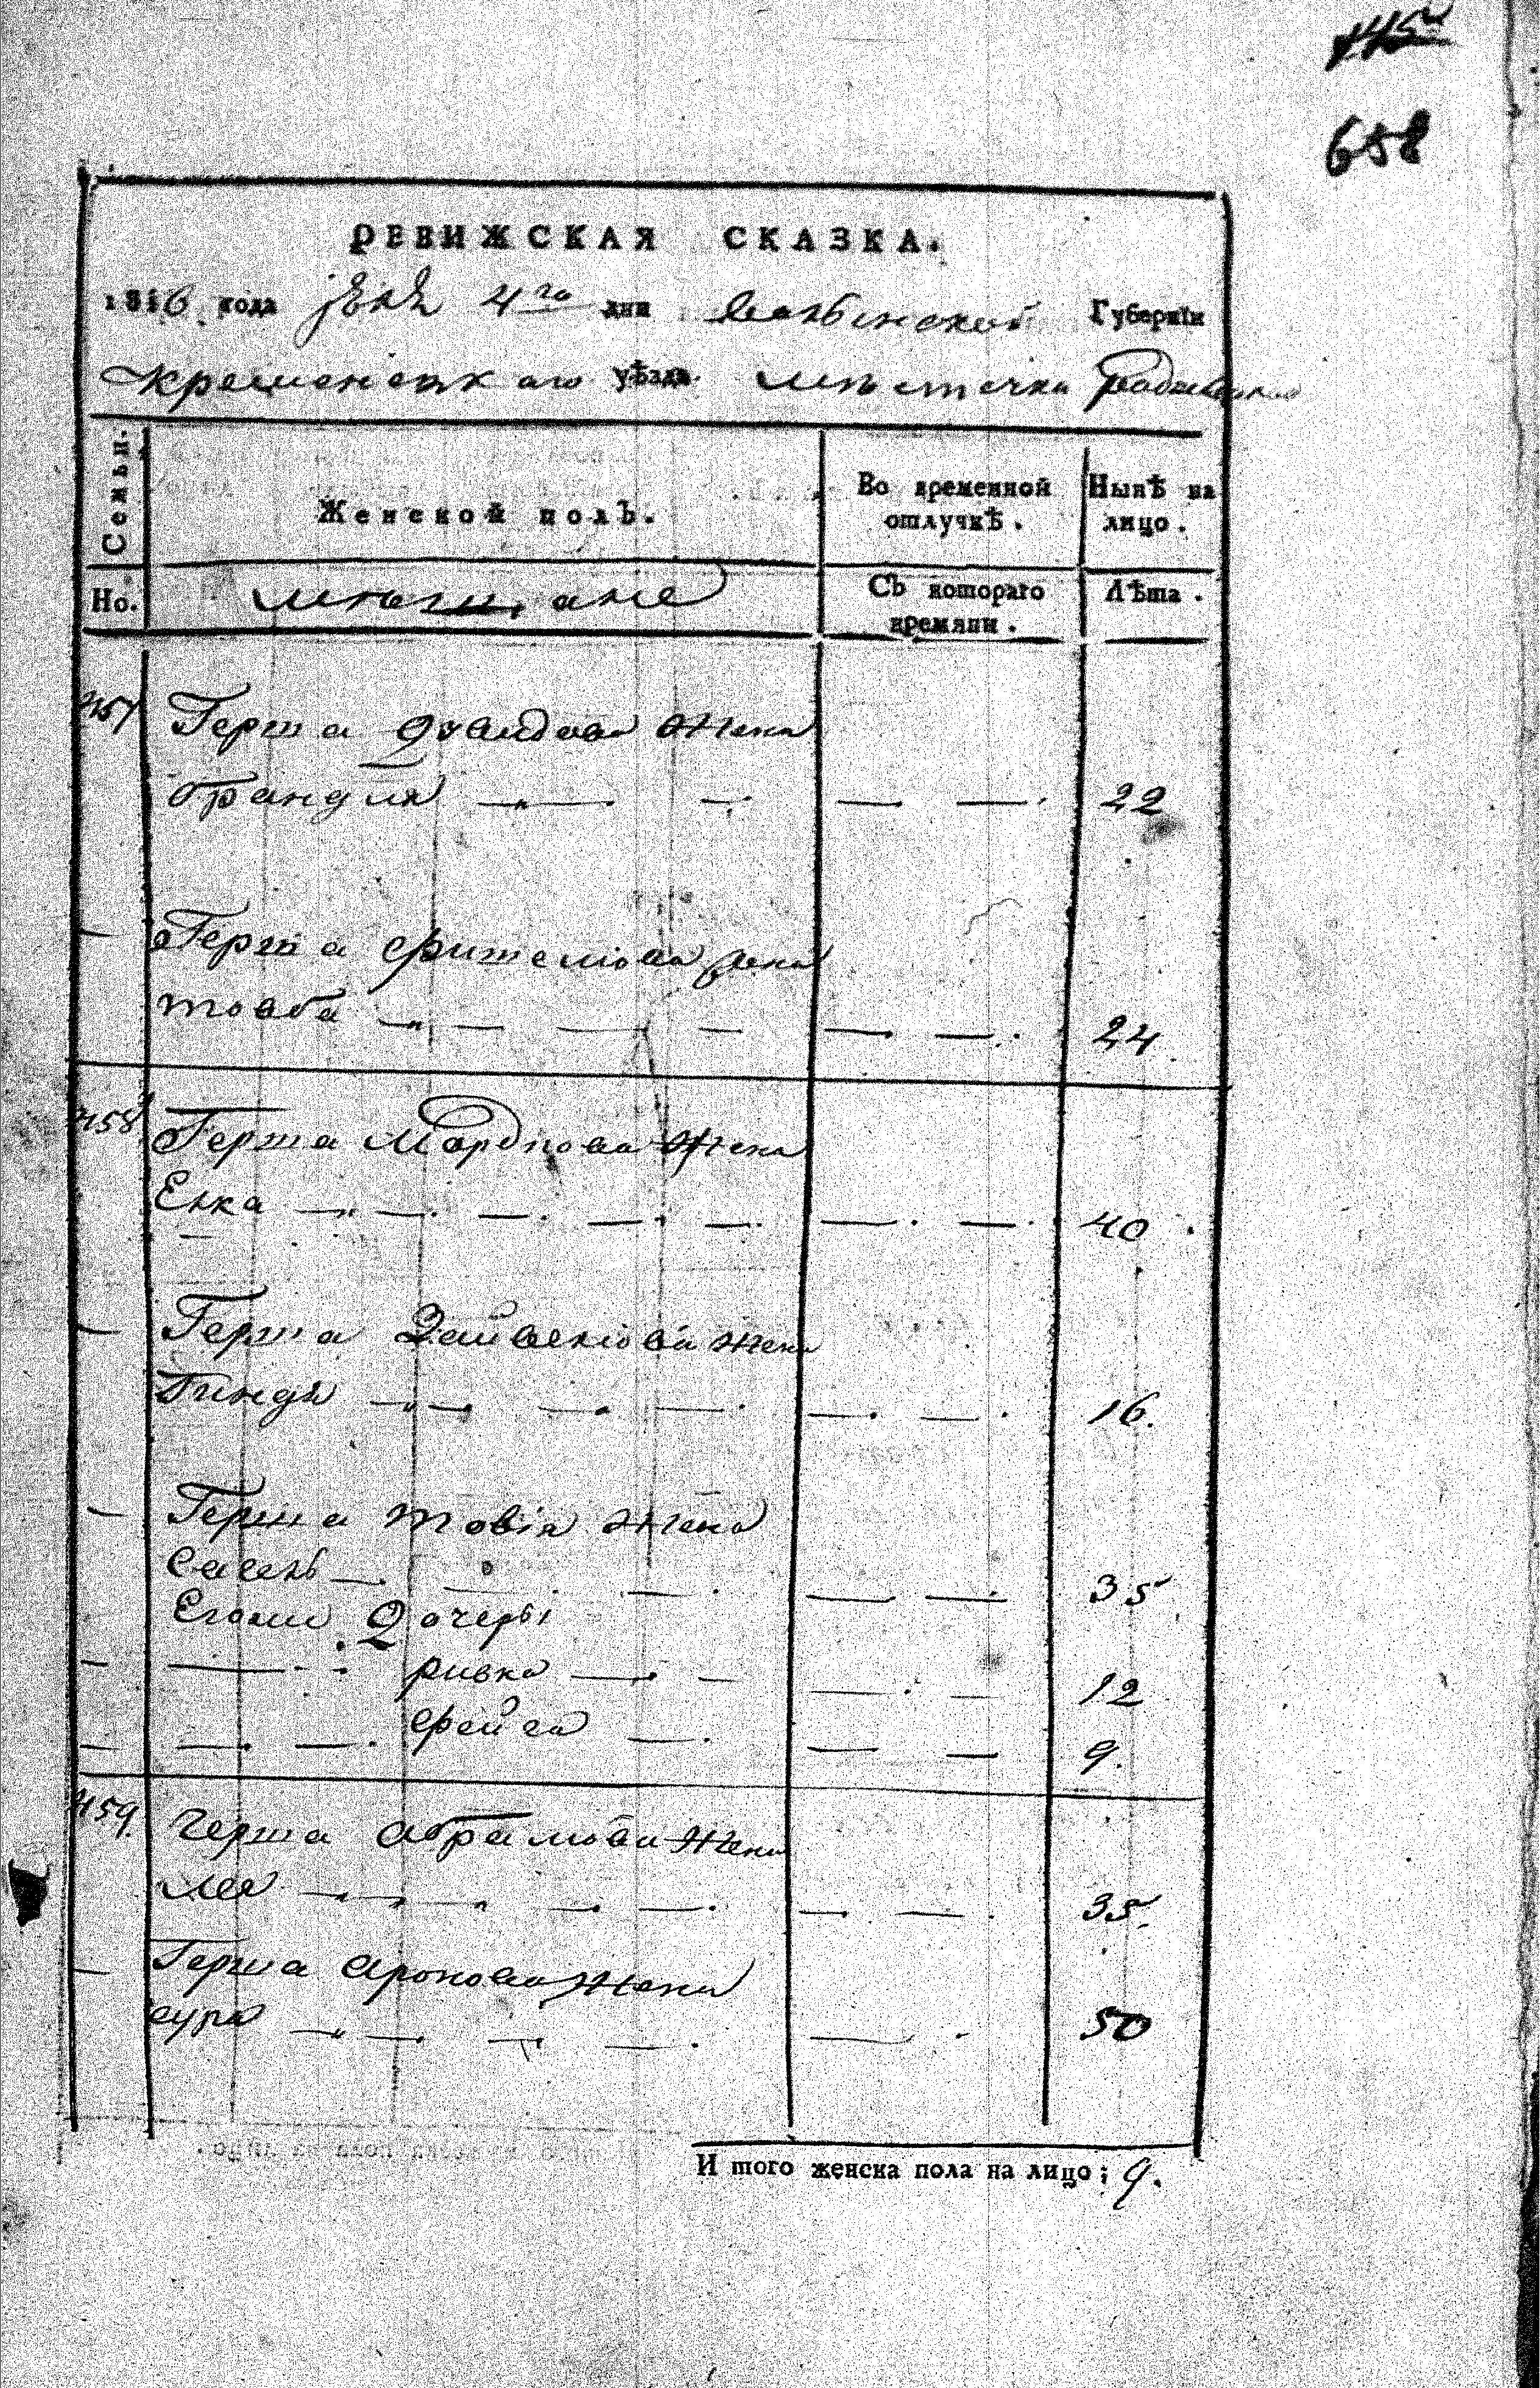 658
РЕВИЖСКАЯ СКАЗКА.
1816 года 4го дня Волынской Губернїи
Кременецкаго уѣзда местечка
Семьи. Женской полъ. Во временной отлучкѣ. Нынѣ на лицо.
Но. мещане Съ котораго времяни. Лѣта.
457 Герша жена
брандля 22
Герша жена
товба 24
458 Герша Мордкова жена
Енка 40
Герша жена
Гиндя 16.
Герша товія жена
35
Его дочеры
ривка 12
фейга 9.
459 Герша Абрамова жена
лея 35.
Герша Аронова жена
сура 50
И того женска пола на лицо; 9.